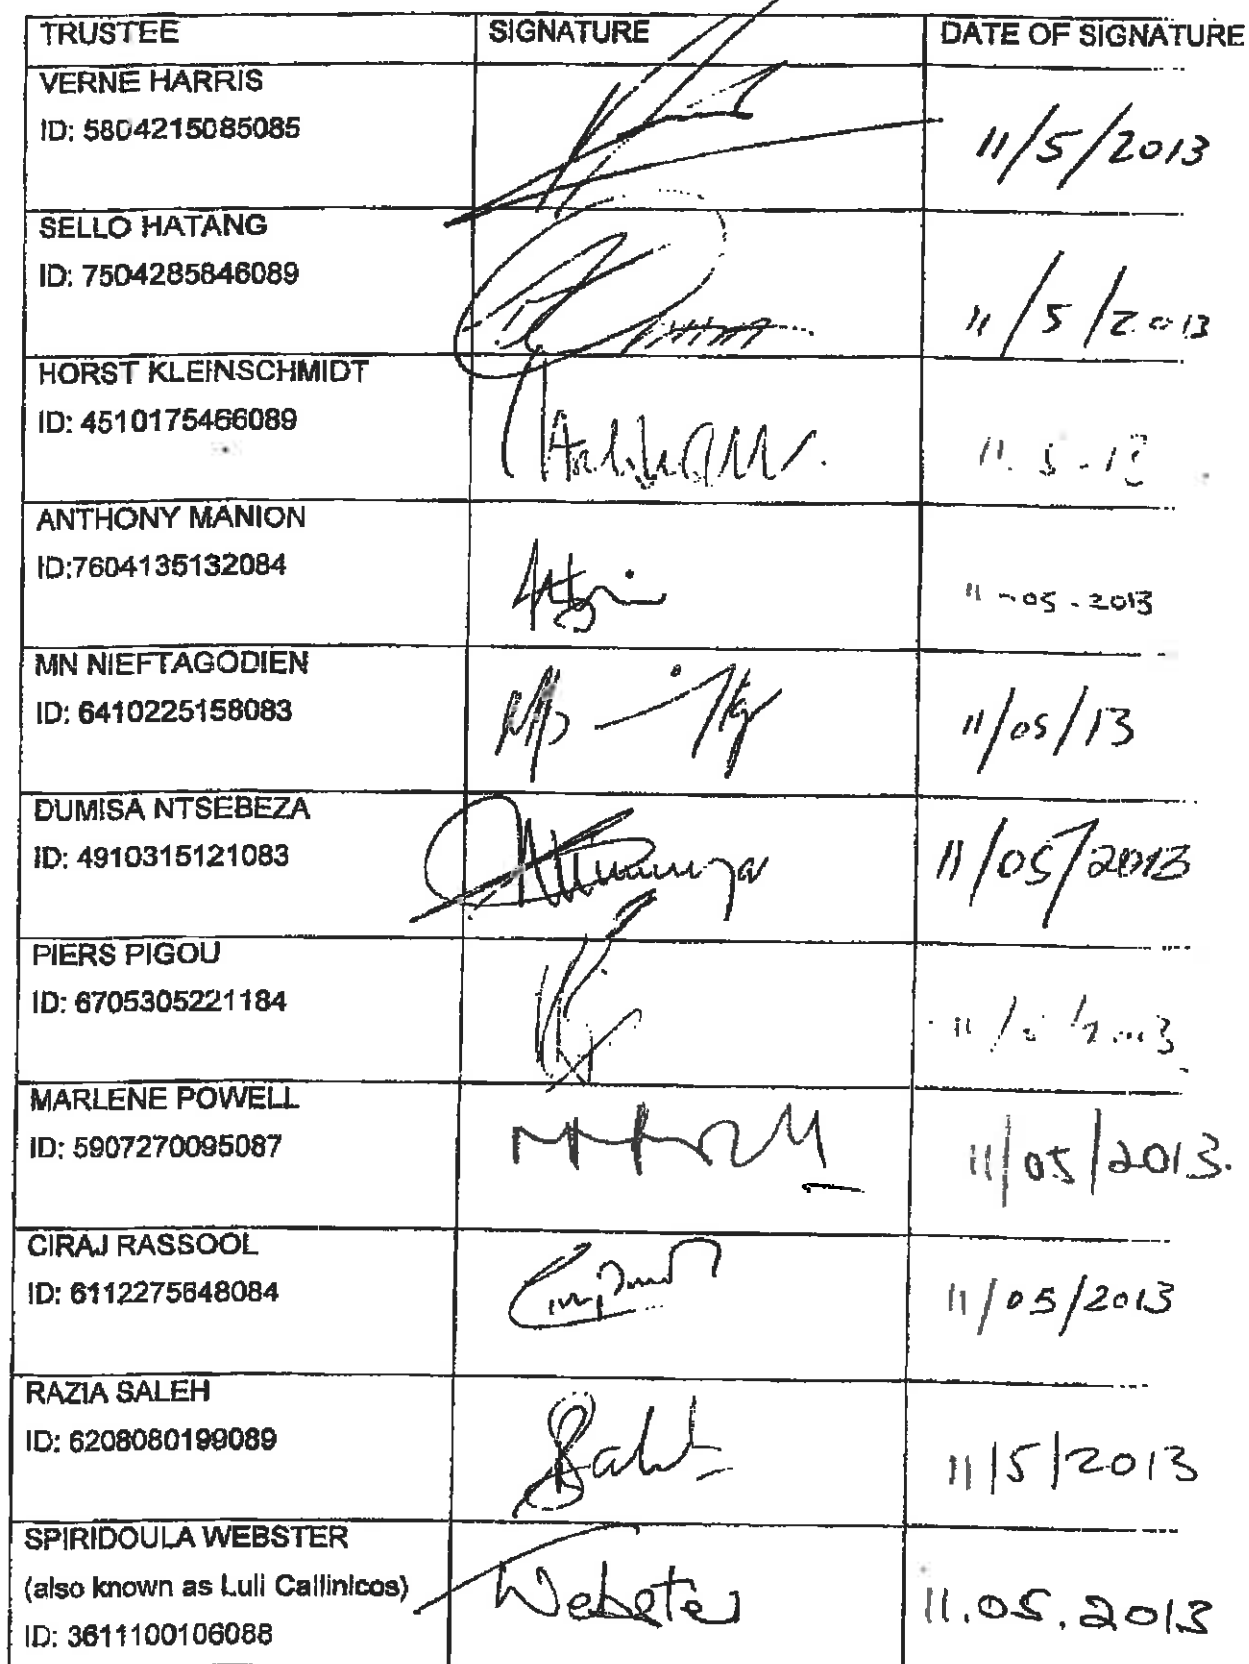 TRUSTEE SIGNATURE DATE OF SIGNATURE
VERNE HARRIS
ID: 5804215085085 11/5/2013
SELLO HATANG
ID: 7504285846089 11/5/2013
HORST KLEINSCHMIDT
ID: 4510175466089 11.5-13
ANTHONY MANION
ID:7604135132084 11-05-2013
MN NIEFTAGODIEN
ID: 6410225158083 11/05/13
DUMISA NTSEBEZA
ID: 4910315121083 11/05/2013
PIERS PIGOU
ID: 6705305221184
MARLENE POWELL
ID: 5907270095087 11/05/2013.
CIRAJ RASSOOL
ID: 6112275648084 11/05/2013
RAZIA SALEH
ID: 6208080199089 Saleh 11/5/2013
SPIRIDOULA WEBSTER
(also known as Luli Callinicos) Webster 11.05.2013
ID: 3611100106088